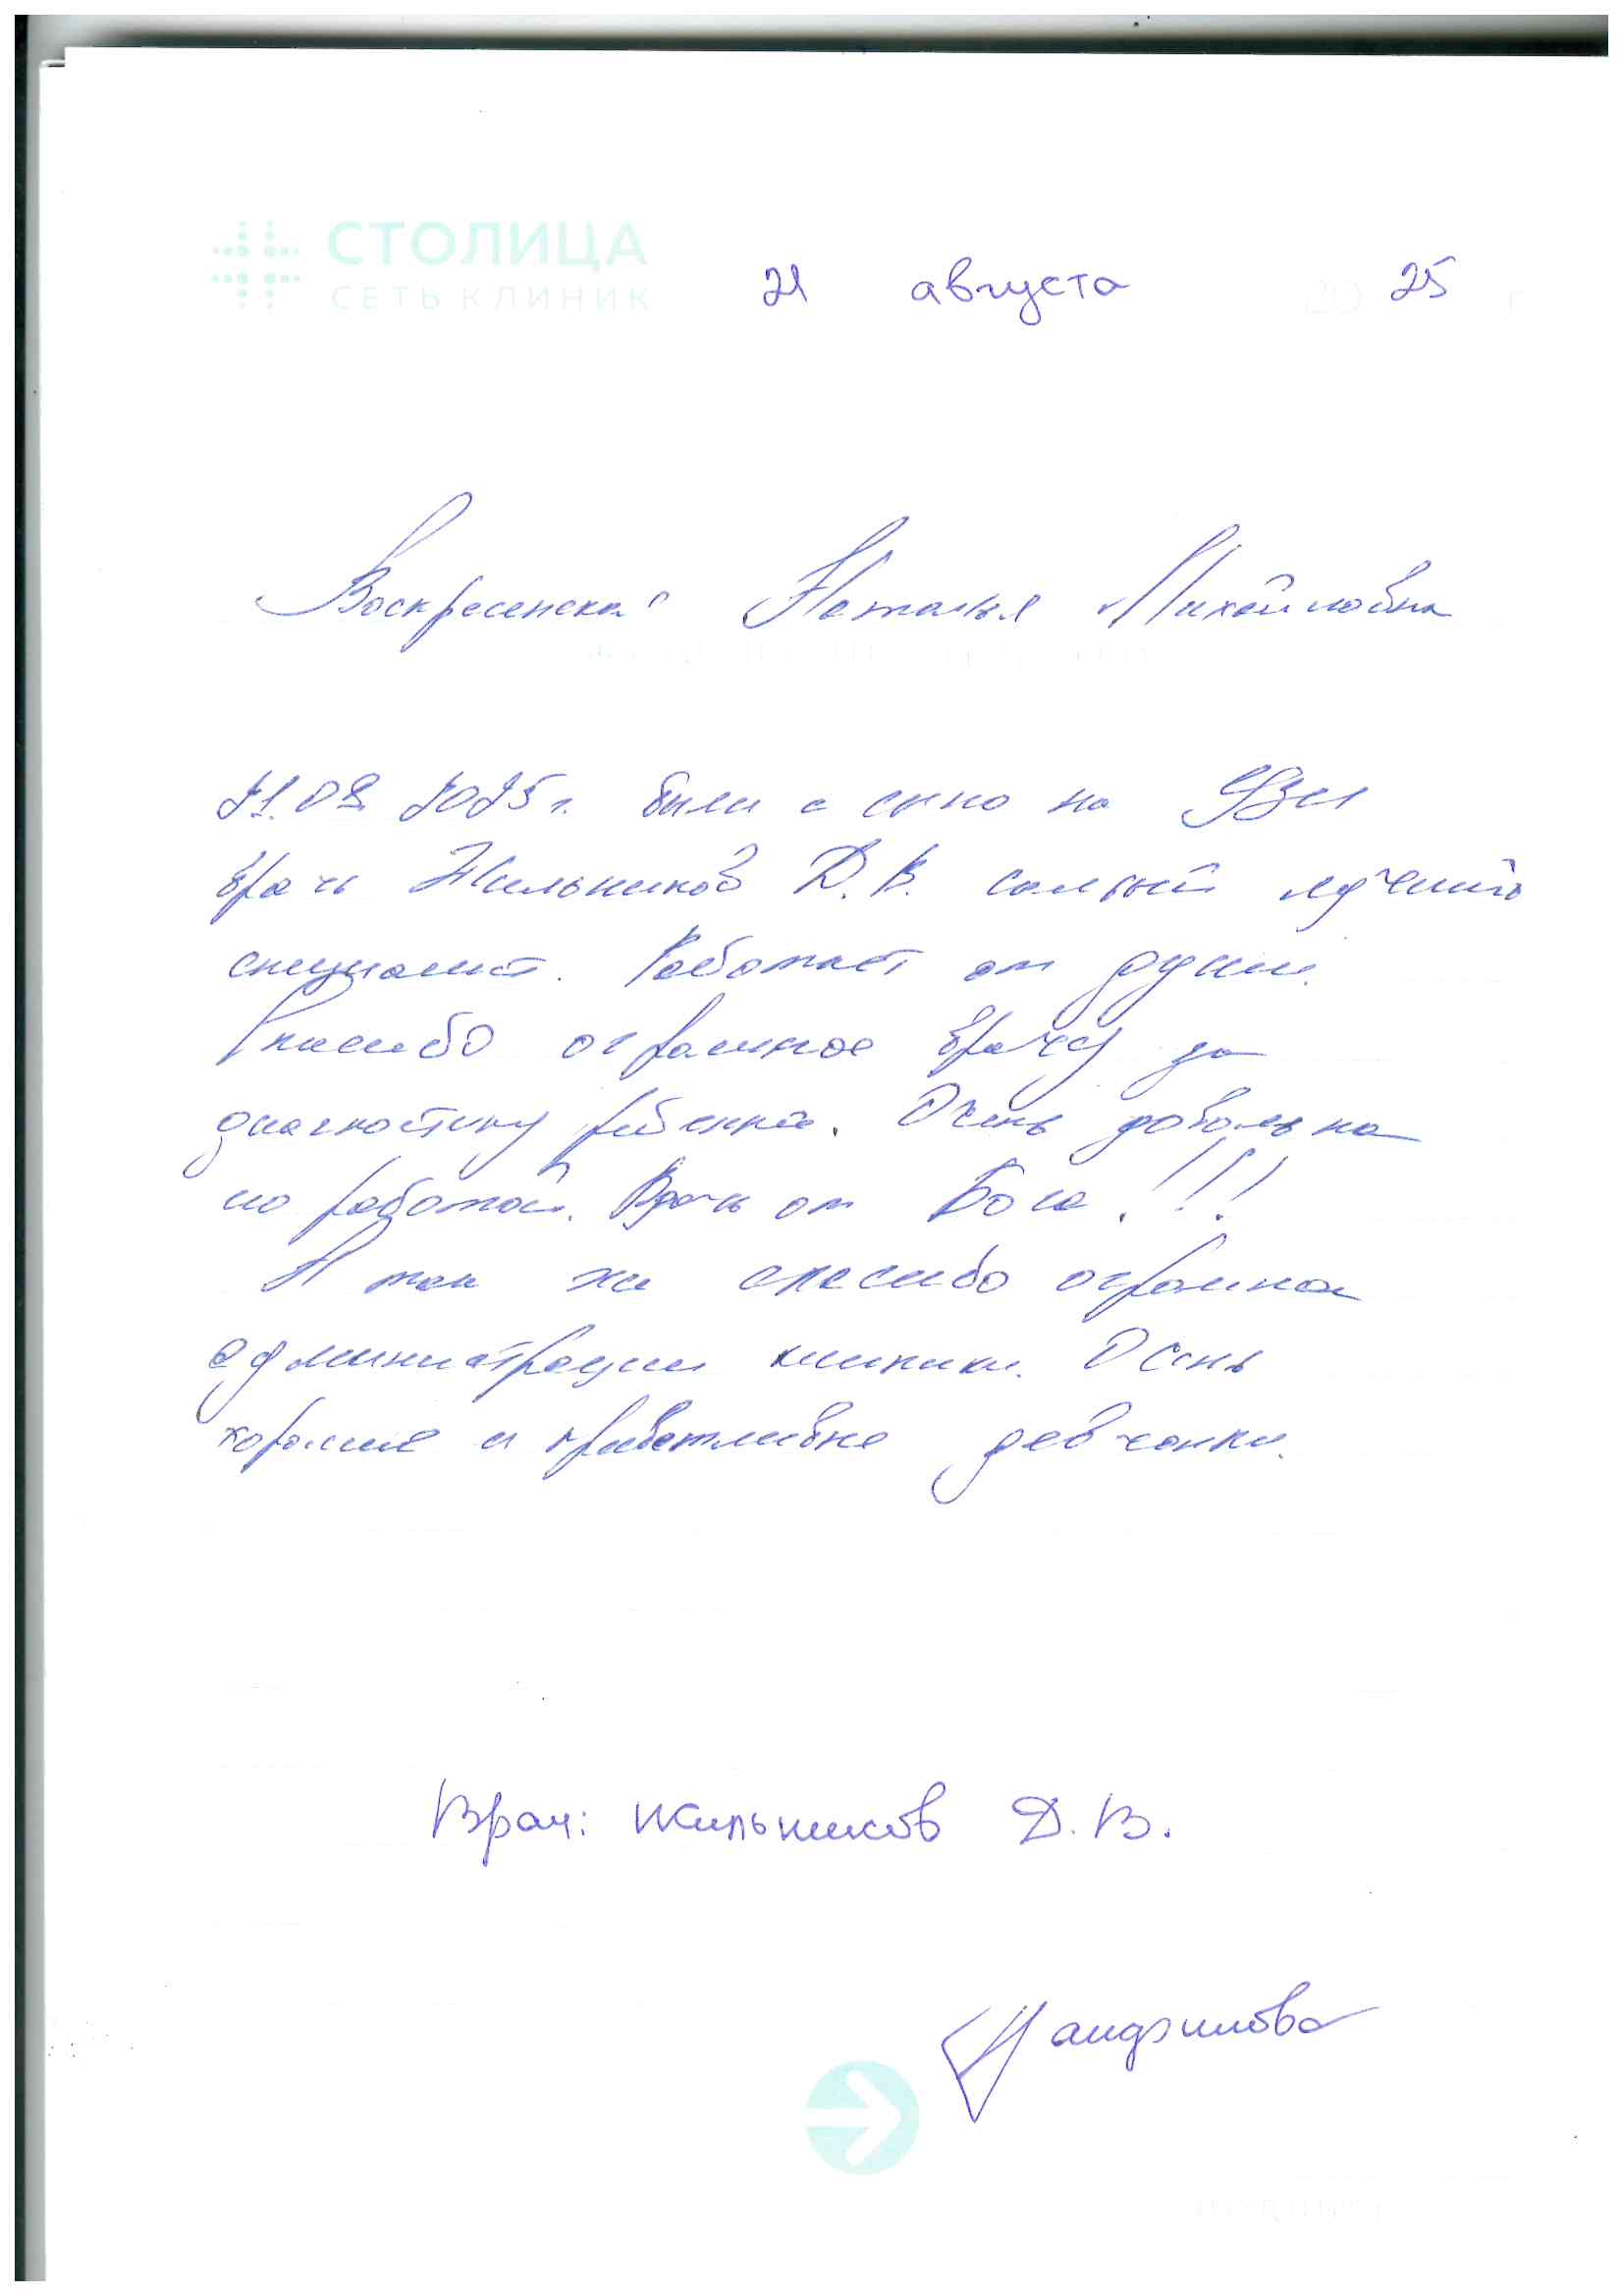 СТОЛИЦА
СЕТЬ КЛИНИК
21 августа 2025
Воскресенская Наталья Михайловна
21.08.2025г. были с сыно на УЗИ
врачь Жильников Д.В. самый лучший
специалист. Работает от души.
Спасибо огромное врачу за
диагностику ребенка. Очень довольна
по работой. Врачь от Бога!!!
А так же спасибо огромное
администрации клиники. Очень
хорошие и приветливые девчонки.
Врач: Жильников Д.В.